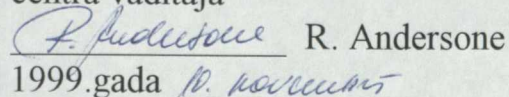 centra vadītāja
R. Andersone R. Andersone
1999.gada 10. novembrī